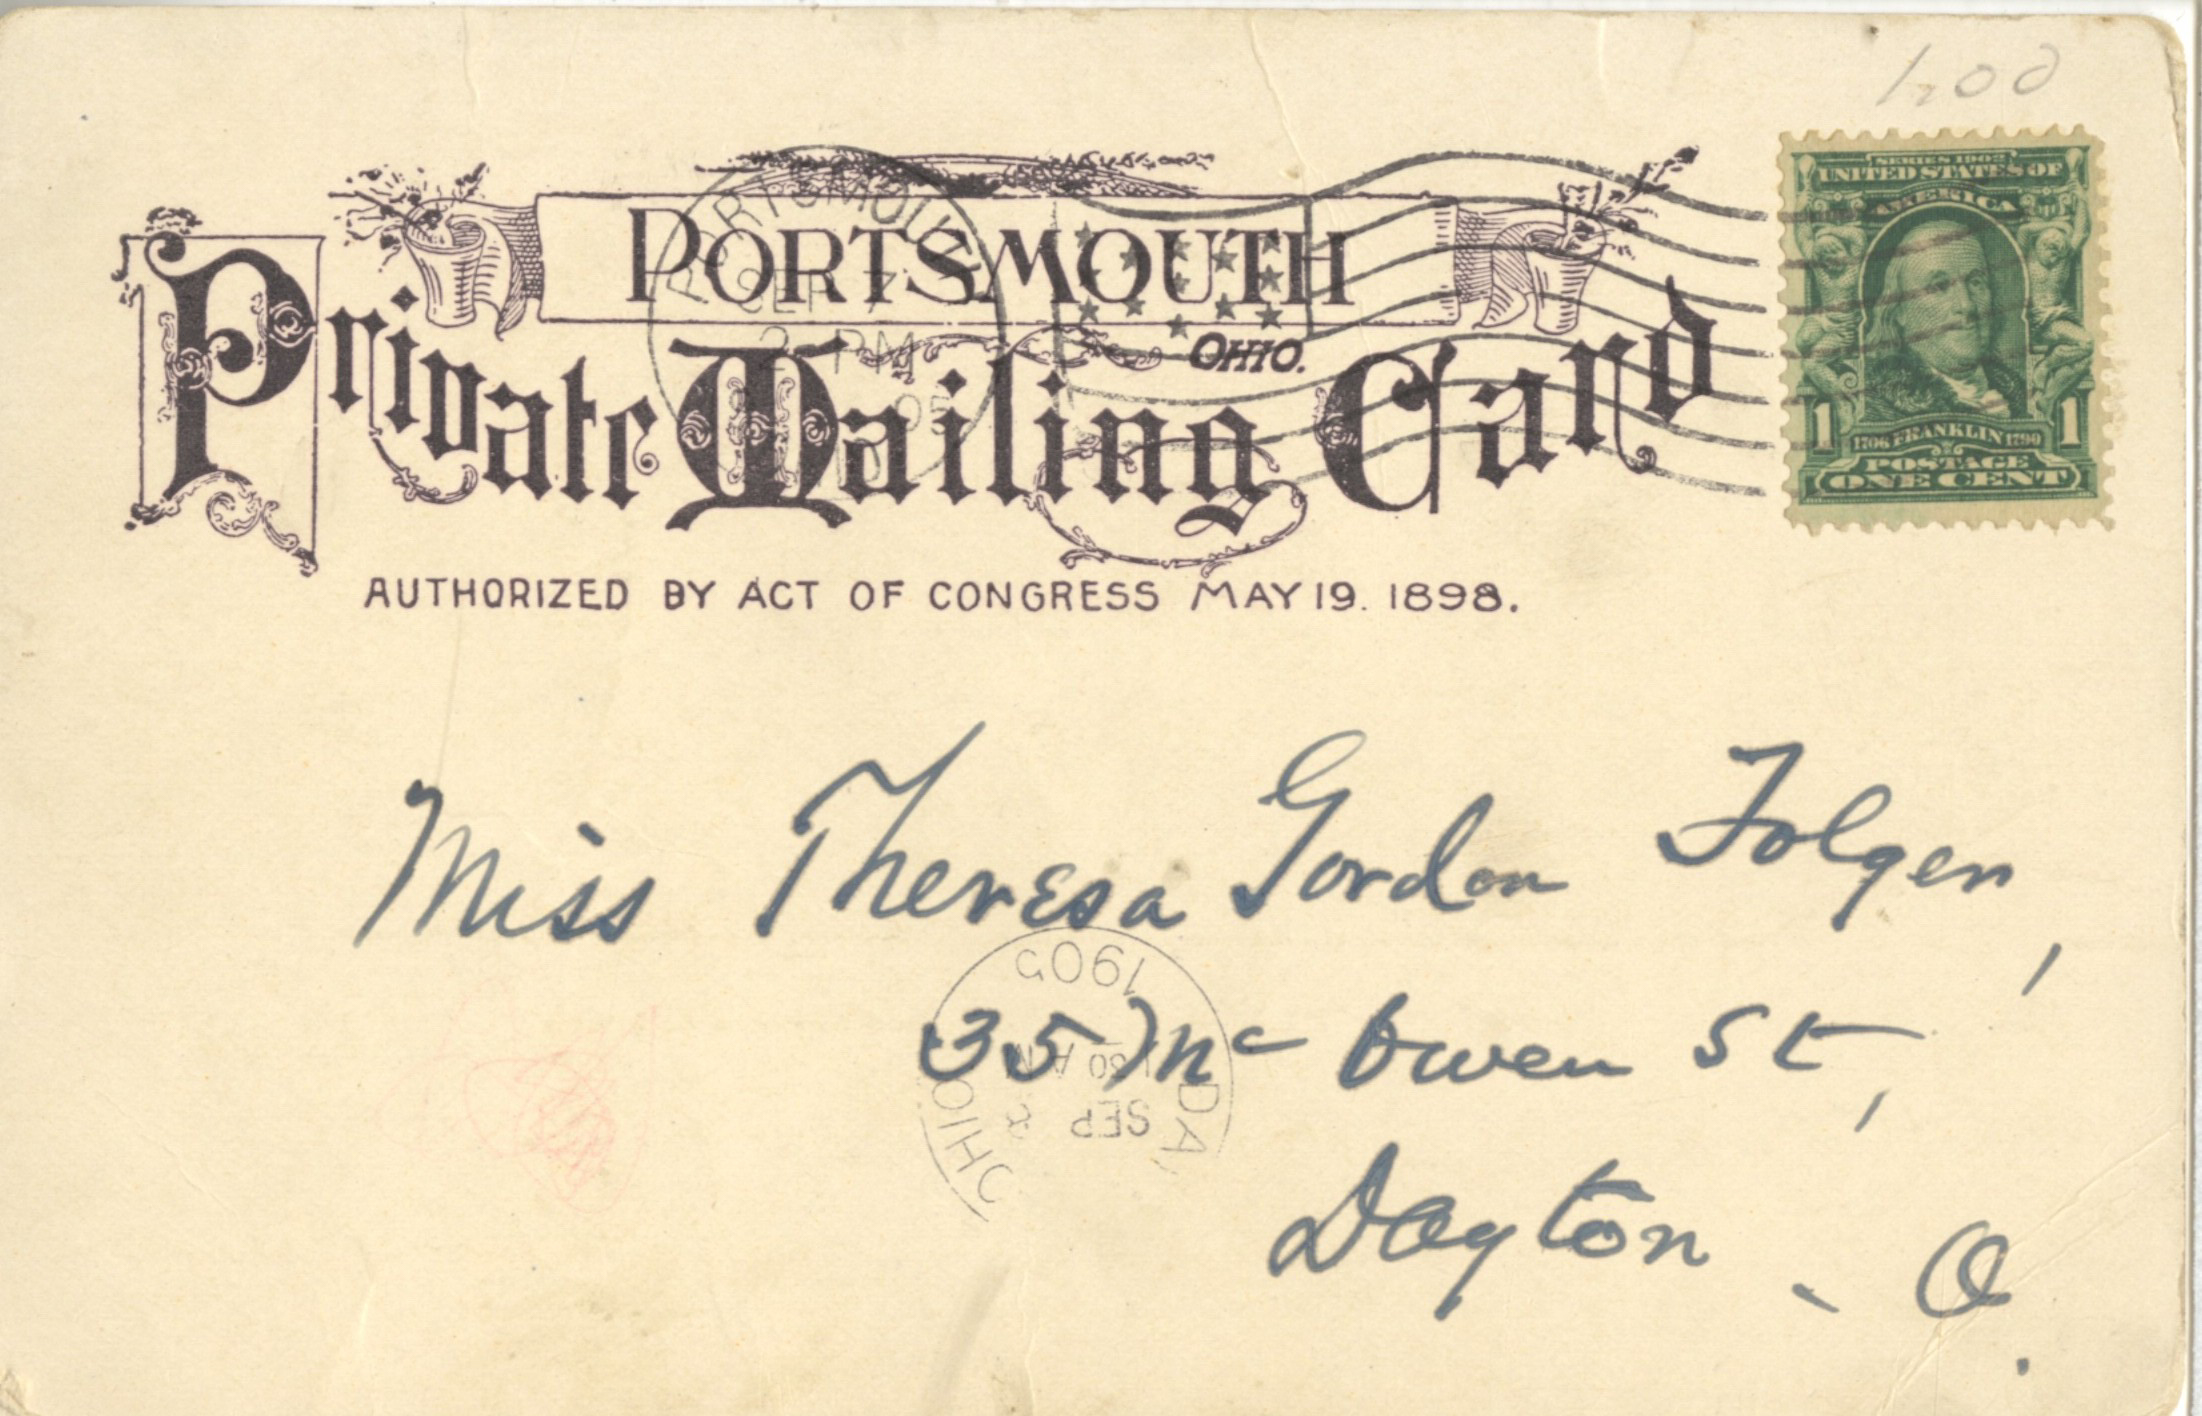 1.00
PORTSMOUTH
OHIO.
Private Mailing Card
AUTHORIZED BY ACT OF CONGRESS MAY 19. 1898.
PORTSMOUTH
SEP 7
2 PM
SERIES 1902
UNITED STATES OF
AMERICA
1 1
1706 FRANKLIN 1790
POSTAGE
ONE CENT
Miss Theresa Gordon Folgen,
35 Mc Owen St,
Dayton - O.
DA OHIO
SEP 8
30 AM
1905